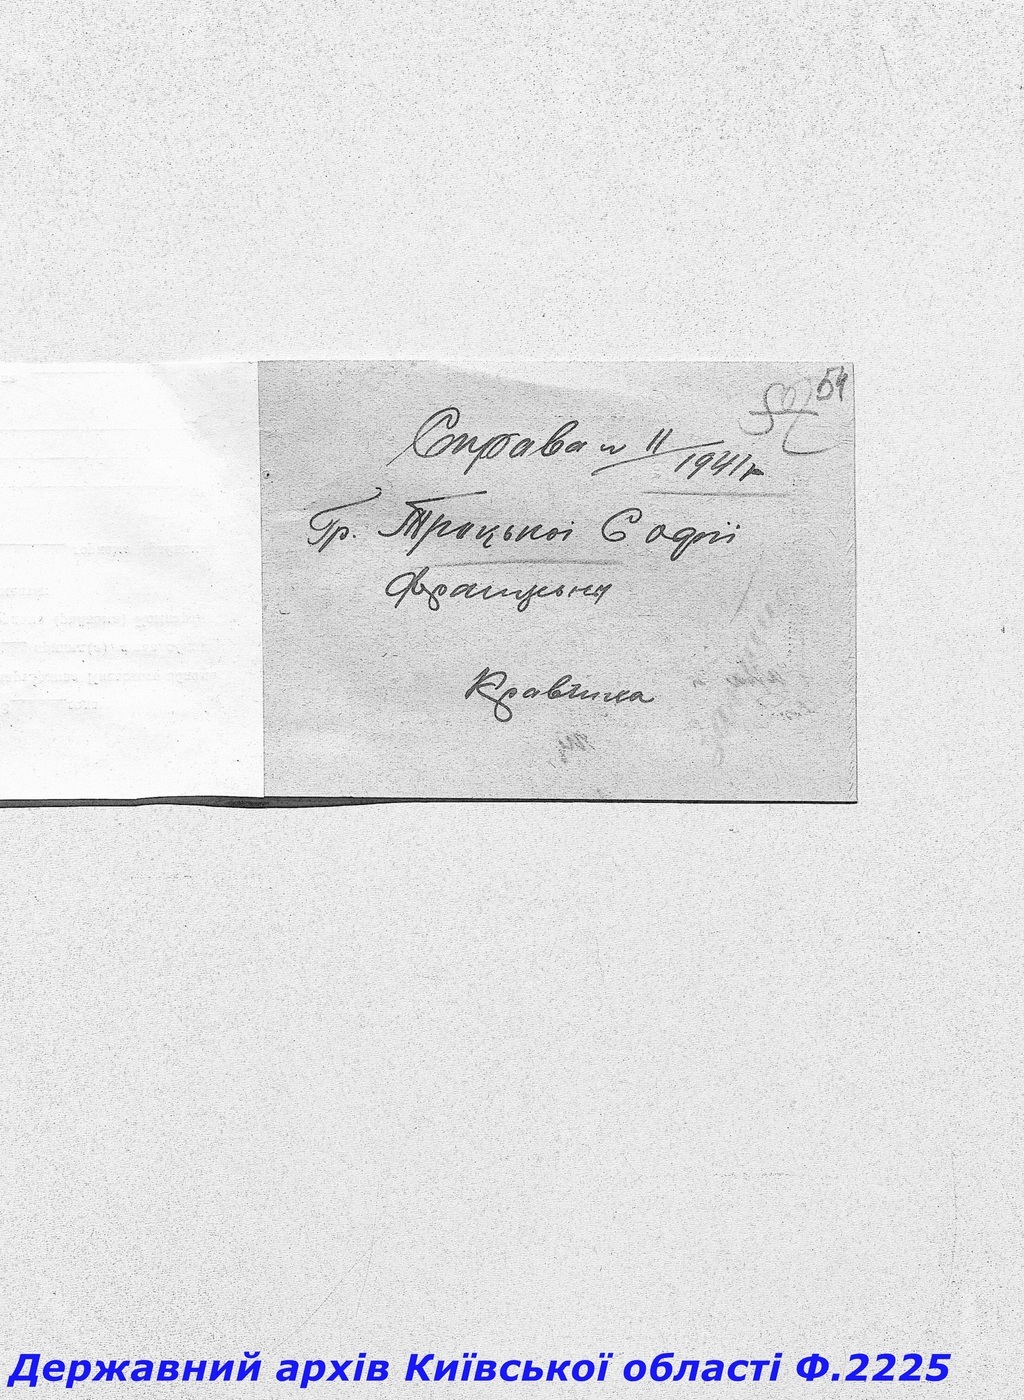 54
Справа № 11/1941 р
Гр. Троцької Софії
Францівни
Кравчиха
Державний архів Київської області Ф.2225